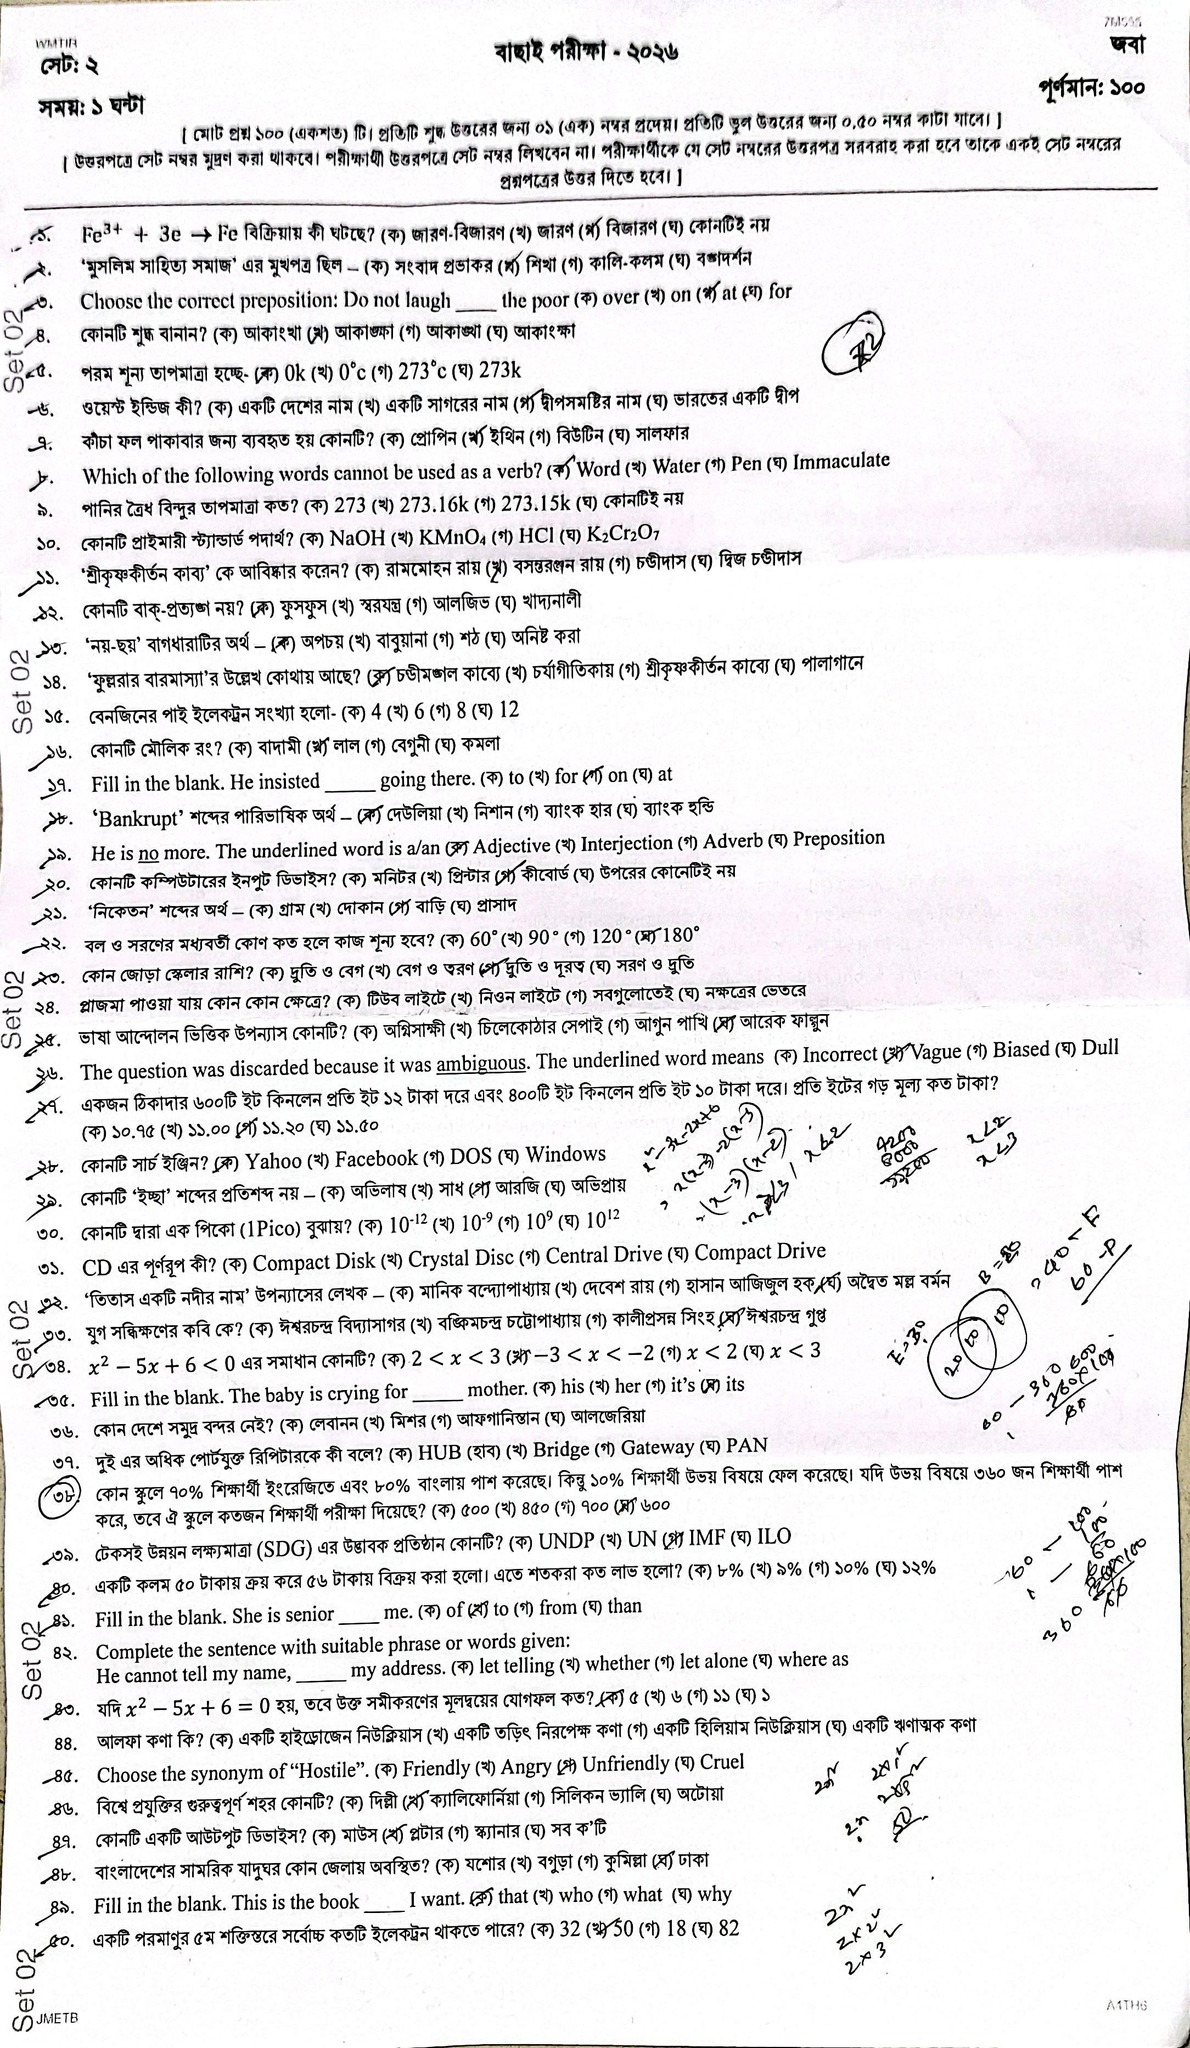 WMTIR
7M535
সেট: ২
বাছাই পরীক্ষা - ২০২৬
জবা
সময়: ১ ঘন্টা
পূর্ণমান: ১০০
[ মোট প্রশ্ন ১০০ (একশত) টি। প্রতিটি শুদ্ধ উত্তরের জন্য ০১ (এক) নম্বর প্রদেয়। প্রতিটি ভুল উত্তরের জন্য ০.৫০ নম্বর কাটা যাবে। ]
[ উত্তরপত্রে সেট নম্বর মুদ্রণ করা থাকবে। পরীক্ষার্থী উত্তরপত্রে সেট নম্বর লিখবেন না। পরীক্ষার্থীকে যে সেট নম্বরের উত্তরপত্র সরবরাহ করা হবে তাকে একই সেট নম্বরের
প্রশ্নপত্রের উত্তর দিতে হবে। ]
১. Fe³⁺ + 3e → Fe বিক্রিয়ায় কী ঘটছে? (ক) জারণ-বিজারণ (খ) জারণ (গ) বিজারণ (ঘ) কোনটিই নয়
২. ‘মুসলিম সাহিত্য সমাজ’ এর মুখপত্র ছিল – (ক) সংবাদ প্রভাকর (খ) শিখা (গ) কালি-কলম (ঘ) বঙ্গদর্শন
৩. Choose the correct preposition: Do not laugh ____ the poor (ক) over (খ) on (গ) at (ঘ) for
৪. কোনটি শুদ্ধ বানান? (ক) আকাংখা (খ) আকাঙ্ক্ষা (গ) আকাঙ্খা (ঘ) আকাংক্ষা
৫. পরম শূন্য তাপমাত্রা হচ্ছে- (ক) 0k (খ) 0°c (গ) 273°c (ঘ) 273k
৬. ওয়েস্ট ইন্ডিজ কী? (ক) একটি দেশের নাম (খ) একটি সাগরের নাম (গ) দ্বীপসমষ্টির নাম (ঘ) ভারতের একটি দ্বীপ
৭. কাঁচা ফল পাকাবার জন্য ব্যবহৃত হয় কোনটি? (ক) প্রোপিন (খ) ইথিন (গ) বিউটিন (ঘ) সালফার
৮. Which of the following words cannot be used as a verb? (ক) Word (খ) Water (গ) Pen (ঘ) Immaculate
৯. পানির ত্রৈধ বিন্দুর তাপমাত্রা কত? (ক) 273 (খ) 273.16k (গ) 273.15k (ঘ) কোনটিই নয়
১০. কোনটি প্রাইমারী স্ট্যান্ডার্ড পদার্থ? (ক) NaOH (খ) KMnO₄ (গ) HCl (ঘ) K₂Cr₂O₇
১১. ‘শ্রীকৃষ্ণকীর্তন কাব্য’ কে আবিষ্কার করেন? (ক) রামমোহন রায় (খ) বসন্তরঞ্জন রায় (গ) চণ্ডীদাস (ঘ) দ্বিজ চণ্ডীদাস
১২. কোনটি বাক্-প্রত্যঙ্গ নয়? (ক) ফুসফুস (খ) স্বরযন্ত্র (গ) আলজিভ (ঘ) খাদ্যনালী
১৩. ‘নয়-ছয়’ বাগধারাটির অর্থ – (ক) অপচয় (খ) বাবুয়ানা (গ) শঠ (ঘ) অনিষ্ট করা
১৪. ‘ফুল্লরার বারমাস্যা’র উল্লেখ কোথায় আছে? (ক) চণ্ডীমঙ্গল কাব্যে (খ) চর্যাগীতিকায় (গ) শ্রীকৃষ্ণকীর্তন কাব্যে (ঘ) পালাগানে
১৫. বেনজিনের পাই ইলেকট্রন সংখ্যা হলো- (ক) 4 (খ) 6 (গ) 8 (ঘ) 12
১৬. কোনটি মৌলিক রং? (ক) বাদামী (খ) লাল (গ) বেগুনী (ঘ) কমলা
১৭. Fill in the blank. He insisted _____ going there. (ক) to (খ) for (গ) on (ঘ) at
১৮. ‘Bankrupt’ শব্দের পারিভাষিক অর্থ – (ক) দেউলিয়া (খ) নিশান (গ) ব্যাংক হার (ঘ) ব্যাংক হন্ডি
১৯. He is no more. The underlined word is a/an (ক) Adjective (খ) Interjection (গ) Adverb (ঘ) Preposition
২০. কোনটি কম্পিউটারের ইনপুট ডিভাইস? (ক) মনিটর (খ) প্রিন্টার (গ) কীবোর্ড (ঘ) উপরের কোনেটিই নয়
২১. ‘নিকেতন’ শব্দের অর্থ – (ক) গ্রাম (খ) দোকান (গ) বাড়ি (ঘ) প্রাসাদ
২২. বল ও সরণের মধ্যবর্তী কোণ কত হলে কাজ শূন্য হবে? (ক) 60° (খ) 90° (গ) 120° (ঘ) 180°
২৩. কোন জোড়া স্কেলার রাশি? (ক) দ্রুতি ও বেগ (খ) বেগ ও ত্বরণ (গ) দ্রুতি ও দূরত্ব (ঘ) সরণ ও দ্রুতি
২৪. প্লাজমা পাওয়া যায় কোন কোন ক্ষেত্রে? (ক) টিউব লাইটে (খ) নিওন লাইটে (গ) সবগুলোতেই (ঘ) নক্ষত্রের ভেতরে
২৫. ভাষা আন্দোলন ভিত্তিক উপন্যাস কোনটি? (ক) অগ্নিসাক্ষী (খ) চিলেকোঠার সেপাই (গ) আগুন পাখি (ঘ) আরেক ফাল্গুন
২৬. The question was discarded because it was ambiguous. The underlined word means (ক) Incorrect (খ) Vague (গ) Biased (ঘ) Dull
২৭. একজন ঠিকাদার ৬০০টি ইট কিনলেন প্রতি ইট ১২ টাকা দরে এবং ৪০০টি ইট কিনলেন প্রতি ইট ১০ টাকা দরে। প্রতি ইটের গড় মূল্য কত টাকা?
(ক) ১০.৭৫ (খ) ১১.০০ (গ) ১১.২০ (ঘ) ১১.৫০
২৮. কোনটি সার্চ ইঞ্জিন? (ক) Yahoo (খ) Facebook (গ) DOS (ঘ) Windows
২৯. কোনটি ‘ইচ্ছা’ শব্দের প্রতিশব্দ নয় – (ক) অভিলাষ (খ) সাধ (গ) আরজি (ঘ) অভিপ্রায়
৩০. কোনটি দ্বারা এক পিকো (1Pico) বুঝায়? (ক) 10⁻¹² (খ) 10⁻⁹ (গ) 10⁹ (ঘ) 10¹²
৩১. CD এর পূর্ণরূপ কী? (ক) Compact Disk (খ) Crystal Disc (গ) Central Drive (ঘ) Compact Drive
৩২. ‘তিতাস একটি নদীর নাম’ উপন্যাসের লেখক – (ক) মানিক বন্দ্যোপাধ্যায় (খ) দেবেশ রায় (গ) হাসান আজিজুল হক (ঘ) অদ্বৈত মল্ল বর্মন
৩৩. যুগ সন্ধিক্ষণের কবি কে? (ক) ঈশ্বরচন্দ্র বিদ্যাসাগর (খ) বঙ্কিমচন্দ্র চট্টোপাধ্যায় (গ) কালীপ্রসন্ন সিংহ (ঘ) ঈশ্বরচন্দ্র গুপ্ত
৩৪. x² − 5x + 6 < 0 এর সমাধান কোনটি? (ক) 2 < x < 3 (খ) −3 < x < −2 (গ) x < 2 (ঘ) x < 3
৩৫. Fill in the blank. The baby is crying for _____ mother. (ক) his (খ) her (গ) it’s (ঘ) its
৩৬. কোন দেশে সমুদ্র বন্দর নেই? (ক) লেবানন (খ) মিশর (গ) আফগানিস্তান (ঘ) আলজেরিয়া
৩৭. দুই এর অধিক পোর্টযুক্ত রিপিটারকে কী বলে? (ক) HUB (হাব) (খ) Bridge (গ) Gateway (ঘ) PAN
৩৮. কোন স্কুলে ৭০% শিক্ষার্থী ইংরেজিতে এবং ৮০% বাংলায় পাশ করেছে। কিন্তু ১০% শিক্ষার্থী উভয় বিষয়ে ফেল করেছে। যদি উভয় বিষয়ে ৩৬০ জন শিক্ষার্থী পাশ
করে, তবে ঐ স্কুলে কতজন শিক্ষার্থী পরীক্ষা দিয়েছে? (ক) ৫০০ (খ) ৪৫০ (গ) ৭০০ (ঘ) ৬০০
৩৯. টেকসই উন্নয়ন লক্ষ্যমাত্রা (SDG) এর উদ্ভাবক প্রতিষ্ঠান কোনটি? (ক) UNDP (খ) UN (গ) IMF (ঘ) ILO
৪০. একটি কলম ৫০ টাকায় ক্রয় করে ৫৬ টাকায় বিক্রয় করা হলো। এতে শতকরা কত লাভ হলো? (ক) ৮% (খ) ৯% (গ) ১০% (ঘ) ১২%
৪১. Fill in the blank. She is senior ____ me. (ক) of (খ) to (গ) from (ঘ) than
৪২. Complete the sentence with suitable phrase or words given:
He cannot tell my name, _____ my address. (ক) let telling (খ) whether (গ) let alone (ঘ) where as
৪৩. যদি x² − 5x + 6 = 0 হয়, তবে উক্ত সমীকরণের মূলদ্বয়ের যোগফল কত? (ক) ৫ (খ) ৬ (গ) ১১ (ঘ) ১
৪৪. আলফা কণা কি? (ক) একটি হাইড্রোজেন নিউক্লিয়াস (খ) একটি তড়িৎ নিরপেক্ষ কণা (গ) একটি হিলিয়াম নিউক্লিয়াস (ঘ) একটি ঋণাত্মক কণা
৪৫. Choose the synonym of “Hostile”. (ক) Friendly (খ) Angry (গ) Unfriendly (ঘ) Cruel
৪৬. বিশ্বে প্রযুক্তির গুরুত্বপূর্ণ শহর কোনটি? (ক) দিল্লী (খ) ক্যালিফোর্নিয়া (গ) সিলিকন ভ্যালি (ঘ) অটোয়া
৪৭. কোনটি একটি আউটপুট ডিভাইস? (ক) মাউস (খ) প্লটার (গ) স্ক্যানার (ঘ) সব ক'টি
৪৮. বাংলাদেশের সামরিক যাদুঘর কোন জেলায় অবস্থিত? (ক) যশোর (খ) বগুড়া (গ) কুমিল্লা (ঘ) ঢাকা
৪৯. Fill in the blank. This is the book ____ I want. (ক) that (খ) who (গ) what (ঘ) why
৫০. একটি পরমাণুর ৫ম শক্তিস্তরে সর্বোচ্চ কতটি ইলেকট্রন থাকতে পারে? (ক) 32 (খ) 50 (গ) 18 (ঘ) 82
Set 02
Set 02
Set 02
Set 02
Set 02
Set 02
JMETB
A1TH6